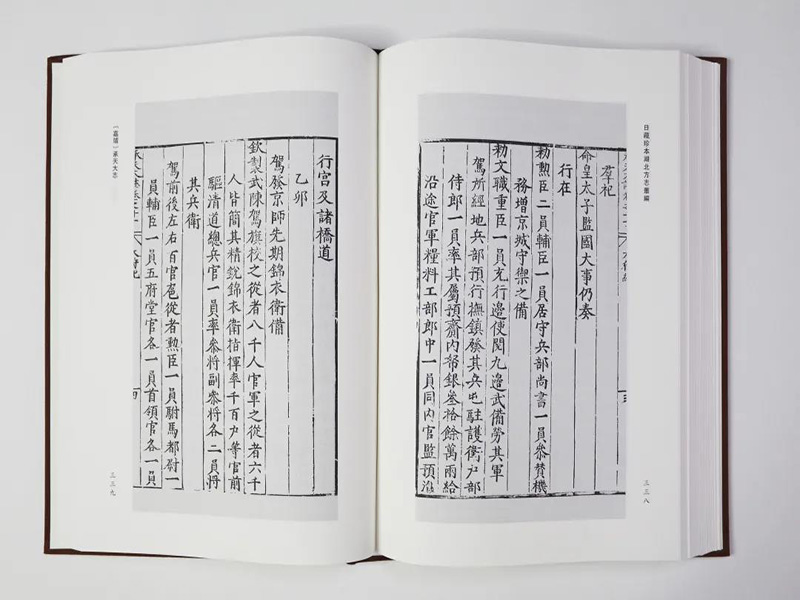 日藏珍本湖北方志彙編
羣祀
命皇太子監國大事仍奏
行在
勑勲臣二員輔臣一員居守兵部尚書一員叅賛機
務增京城守禦之備
勑文職重臣一員充行邊使閱九邊武備勞其軍
駕所經地兵部預行撫鎮發其兵屯駐護衛戶部
侍郎一員率其屬預齎內帑銀叁拾餘萬兩給
沿途官軍糧料工部郎中一員同內官監預治
三三八
行宮及諸橋道
乙卯
駕發京師先期錦衣衛備
欽製武陳駕旗校之從者八千人官軍之從者六千
人皆簡其精銳錦衣衛指揮率千百户等官前
驅清道總兵官一員率叅將副叅將各二員将
其兵衛
駕前後左右百官扈從者勲臣一員駙馬都尉一
員輔臣一員五府堂官各一員首領官各一員
〔嘉靖〕承天大志
三三九